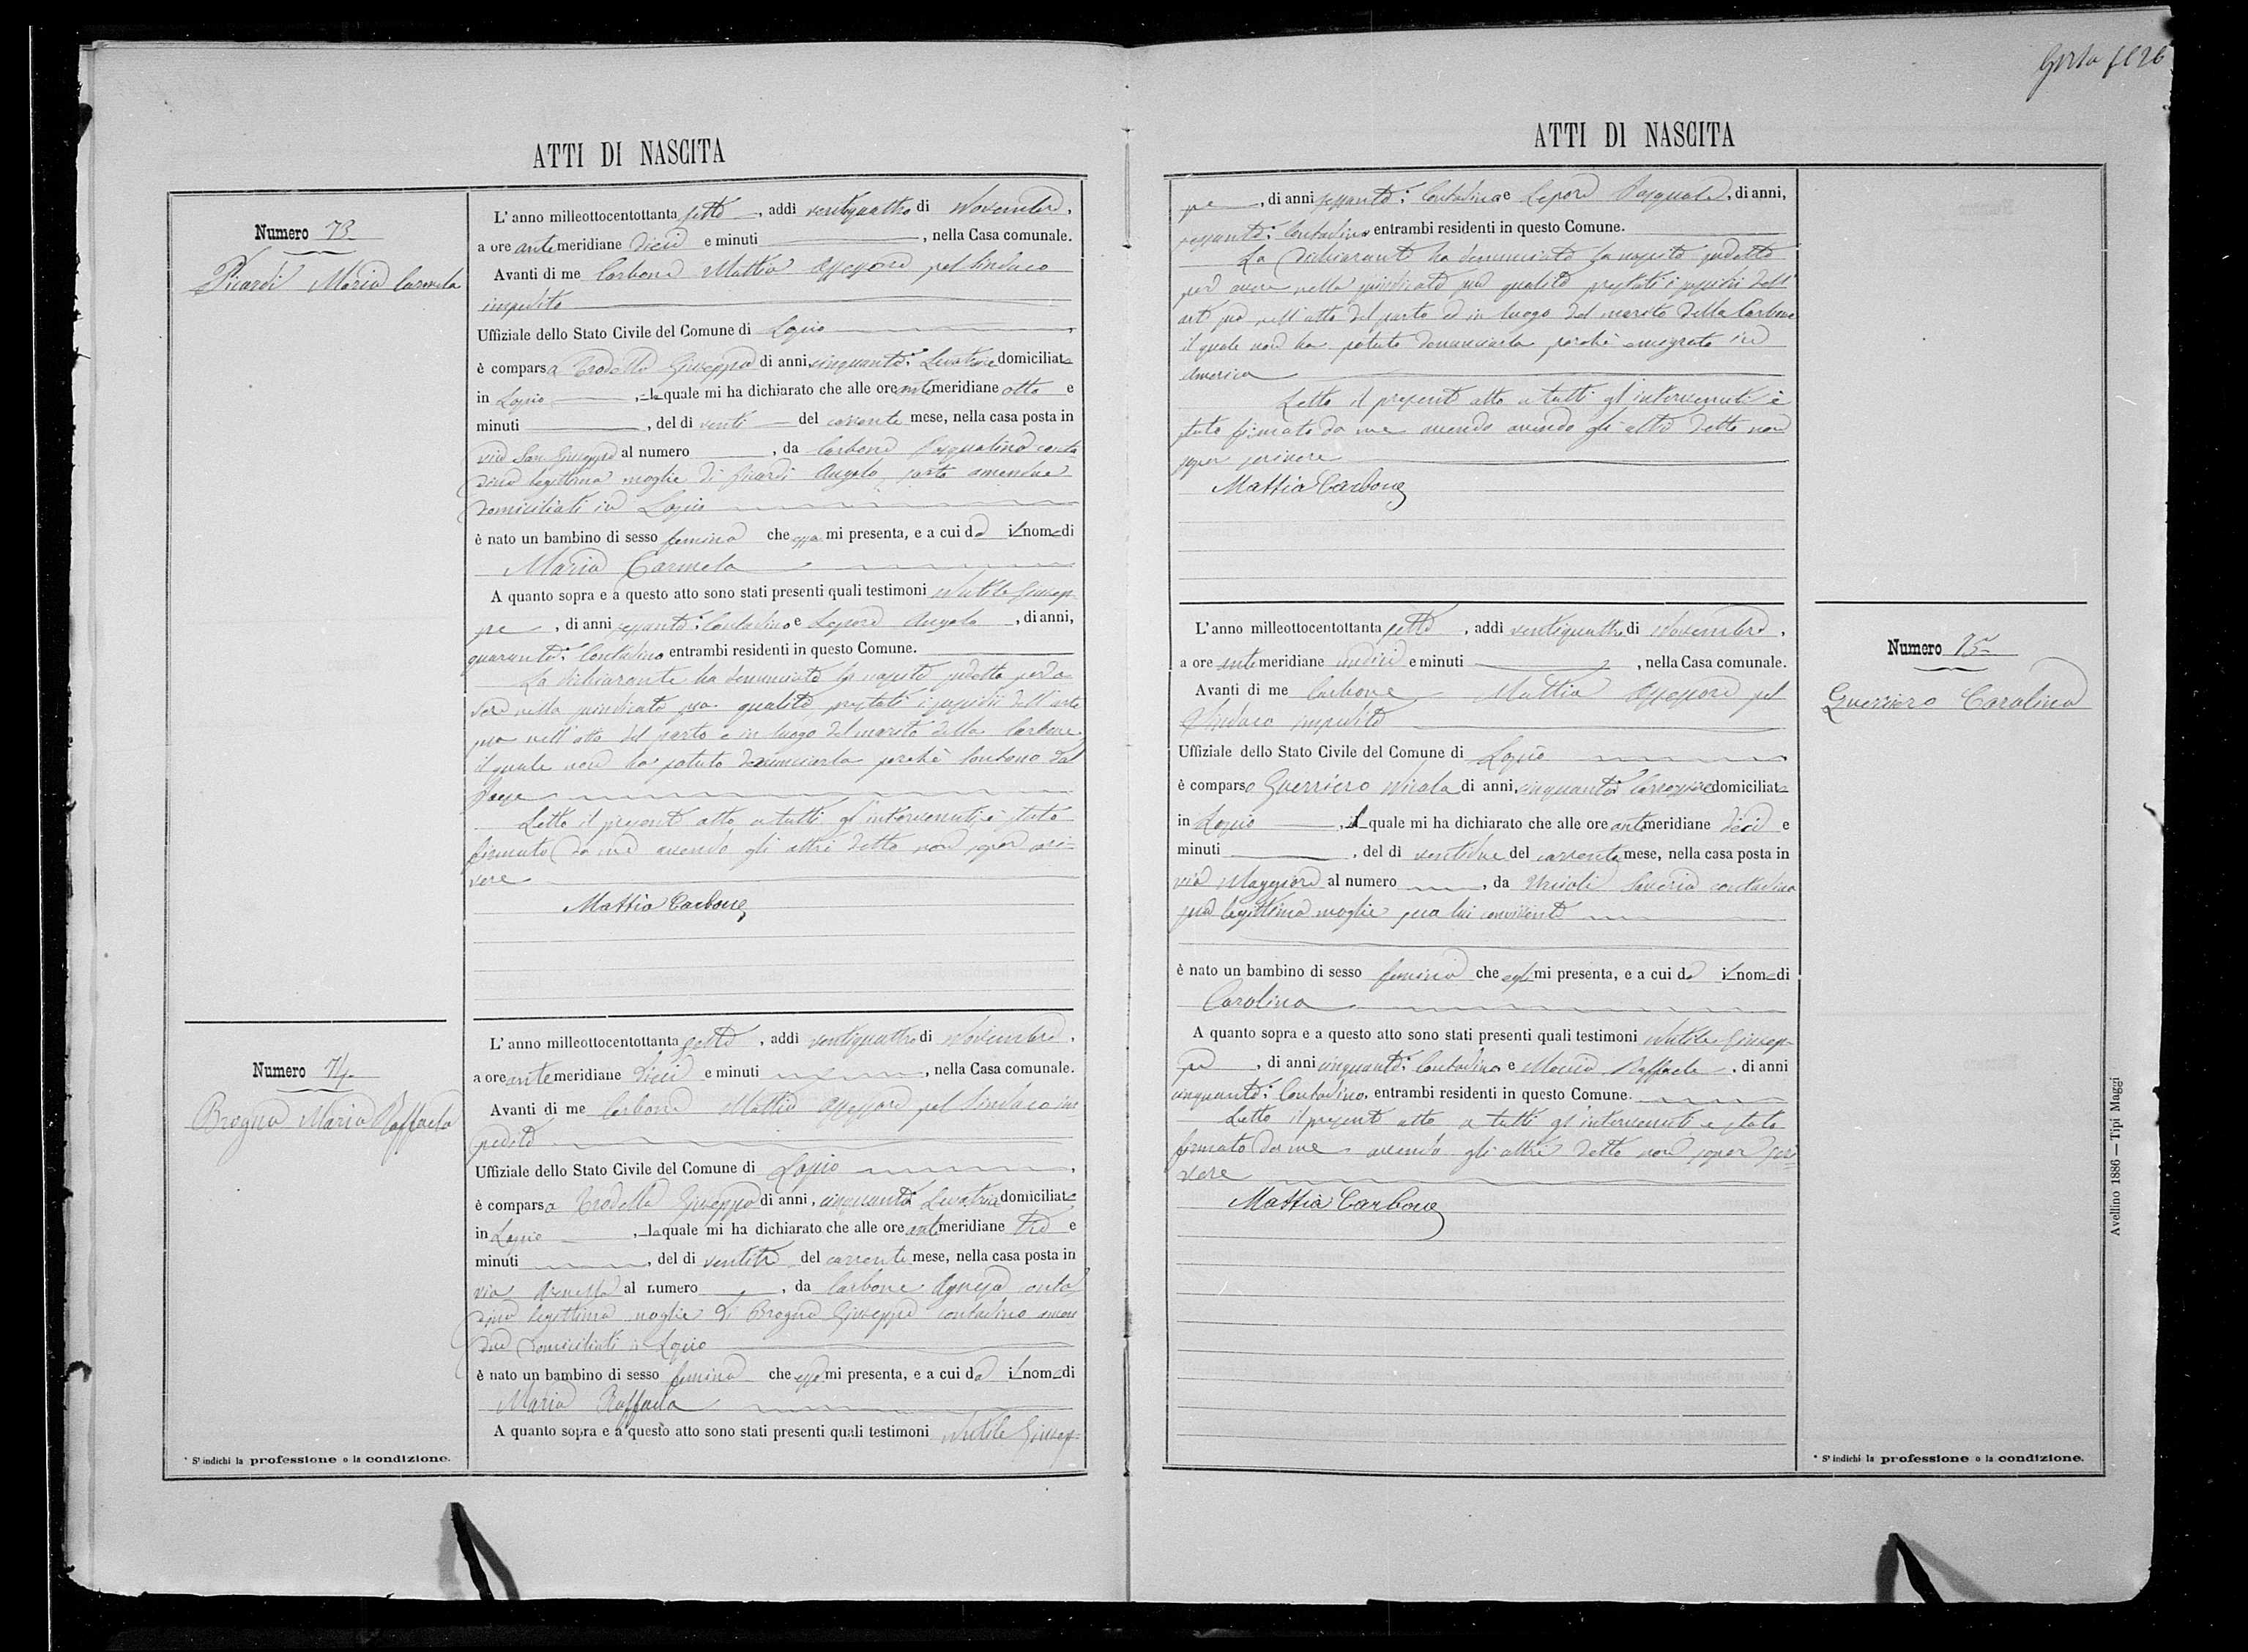 ATTI DI NASCITA
Numero 73
Picardi Maria Carmela
L' anno milleottocentottanta sette, addì ventiquattro di Novembre,
a ore antemeridiane dieci e minuti , nella Casa comunale.
Avanti di me Carbone Mattia Assessore pel Sindaco
impedito
Uffiziale dello Stato Civile del Comune di Lapio
è comparsa Giuseppa di anni cinquanta: Levatrice domiciliata
in Lapio, la quale mi ha dichiarato che alle ore antemeridiane otto e
minuti , del dì venti del corrente mese, nella casa posta in
via San Giuseppe al numero , da Carbone Pasqualina conta
dina legittima moglie di Picardi Angelo, amendue
domiciliati in Lapio
è nato un bambino di sesso femina che essa mi presenta, e a cui dà il nome di
Maria Carmela
A quanto sopra e a questo atto sono stati presenti quali testimoni Nutile Giusep-
pe, di anni sessanta: Contadino e Lepore Angelo, di anni,
quaranta: Contadino entrambi residenti in questo Comune.
La dichiarante ha denunciato la nascita sudetta per a
vere nella qualità prestati i sussidii dell'arte
sua nell'atto del parto e in luogo del marito della Carbone
il quale non ha potuto denunciarla perchè lontano dal
Paese
Letto il presente atto a tutti gl'intervenuti è stato
firmato da me avendo gli altri detto non saper scri-
vere
Mattia Carbone
Numero 74
Brogna Maria Raffaela
L' anno milleottocentottanta sette, addì ventiquattro di Novembre,
a ore antemeridiane dieci e minuti , nella Casa comunale.
Avanti di me Carbone Mattia Assessore pel Sindaco im
pedito
Uffiziale dello Stato Civile del Comune di Lapio
è comparsa Giuseppa di anni, cinquanta: Levatrice domiciliata
in Lapio, la quale mi ha dichiarato che alle ore antemeridiane tre e
minuti , del dì ventitre del corrente mese, nella casa posta in
via al numero , da Carbone Agnesa conta
dina legittima moglie di Brogna Giuseppe contadino amen
due domiciliati in Lapio
è nato un bambino di sesso femina che essa mi presenta, e a cui dà il nome di
Maria Raffaela
A quanto sopra e a questo atto sono stati presenti quali testimoni Nutile Giusep-
* Si indichi la professione o la condizione.
ATTI DI NASCITA
pe, di anni sessanta: Contadino e Lepore Pasquale, di anni,
sessanta: Contadino entrambi residenti in questo Comune.
La dichiarante ha denunciato la nascita sudetta
per avere nella sua qualità prestati i sussidii dell'
arte sua nell'atto del parto ed in luogo del marito della Carbone
il quale non ha potuto denunciarla perchè emigrato in
America
Letto il presente atto a tutti gl'intervenuti è
stato firmato da me avendo avendo gli altri detto non
saper scrivere
Mattia Carbone
Numero 75
Guerriero Carolina
L' anno milleottocentottanta sette, addì ventiquattro di Novembre,
a ore antemeridiane undici e minuti , nella Casa comunale.
Avanti di me Carbone Mattia Assessore pel
Sindaco impedito
Uffiziale dello Stato Civile del Comune di Lapio
è comparso Guerriero Nicola di anni, cinquanta: domiciliato
in Lapio, il quale mi ha dichiarato che alle ore antemeridiane dieci e
minuti , del dì ventidue del corrente mese, nella casa posta in
via Maggiore al numero , da Saveria contadina
sua legittima moglie seco lui convivente
è nato un bambino di sesso femina che egli mi presenta, e a cui dà il nome di
Carolina
A quanto sopra e a questo atto sono stati presenti quali testimoni Nutile Giusep-
pe, di anni cinquanta: Contadino e Raffaele, di anni
cinquanta: Contadino, entrambi residenti in questo Comune.
Letto il presente atto a tutti gl'intervenuti è stato
firmato da me avendo gli altri detto non saper scri
vere
Mattia Carbone
* Si indichi la professione o la condizione.
Avellino 1886 — Tipi Maggi